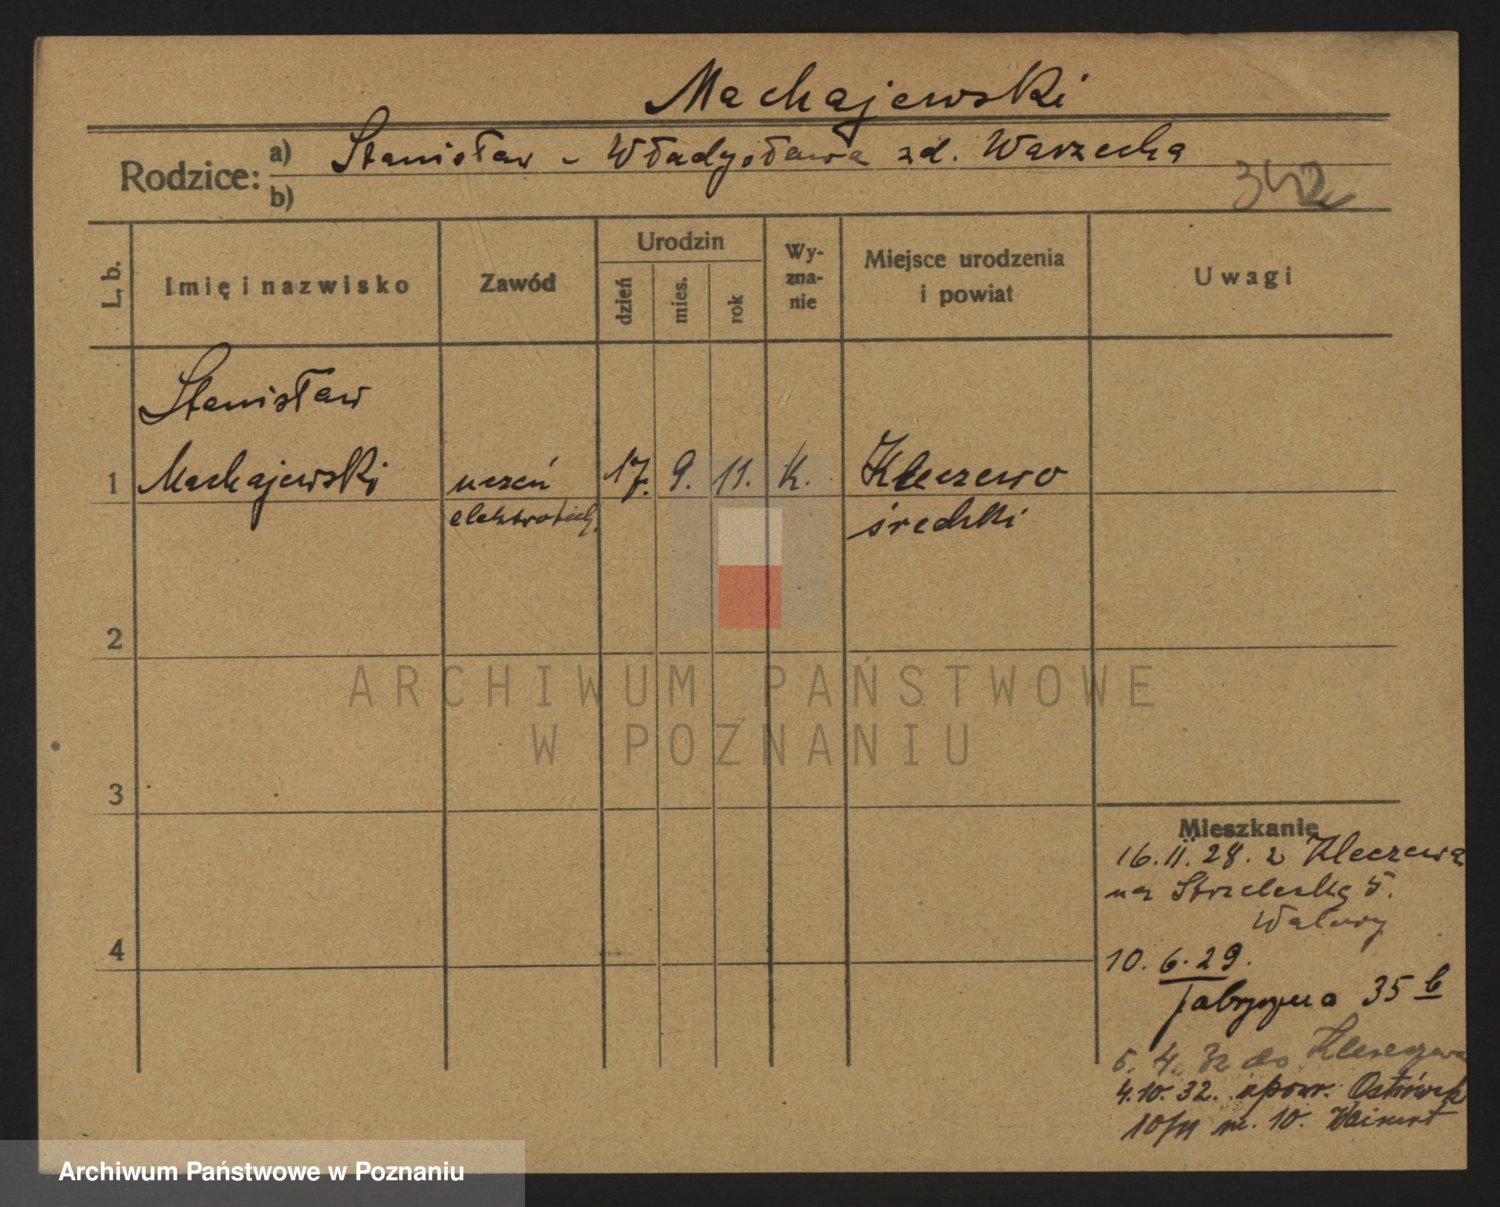 Machajewski
Rodzice: a) Stanisław - Władysława zd. Warzecha
b)
342
L. b.
Imię i nazwisko
Zawód
Urodzin
dzień
mies.
rok
Wy-
zna-
nie
Miejsce urodzenia
i powiat
Uwagi
Stanisław
1 Machajewski uczeń 17. 9. 11. K. Kleczewo
elektrotech. średzki
2
3
4
ARCHIWUM PAŃSTWOWE
W POZNANIU
Mieszkanie
16.11.28. z Kleczewa
na Strzelecką 5.
10.6.29.
fabryczna 35 b
5. 4. 32 do
4.10.32. spowr. Ostrówek
10/11 m. 10.
Archiwum Państwowe w Poznaniu